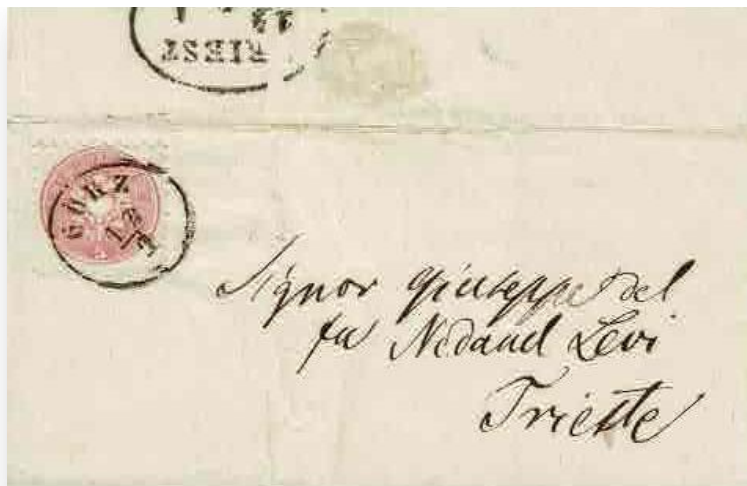 RIEST
GÖRZ
Signor Giuseppe del
fu Nedanel Levi
Trieste